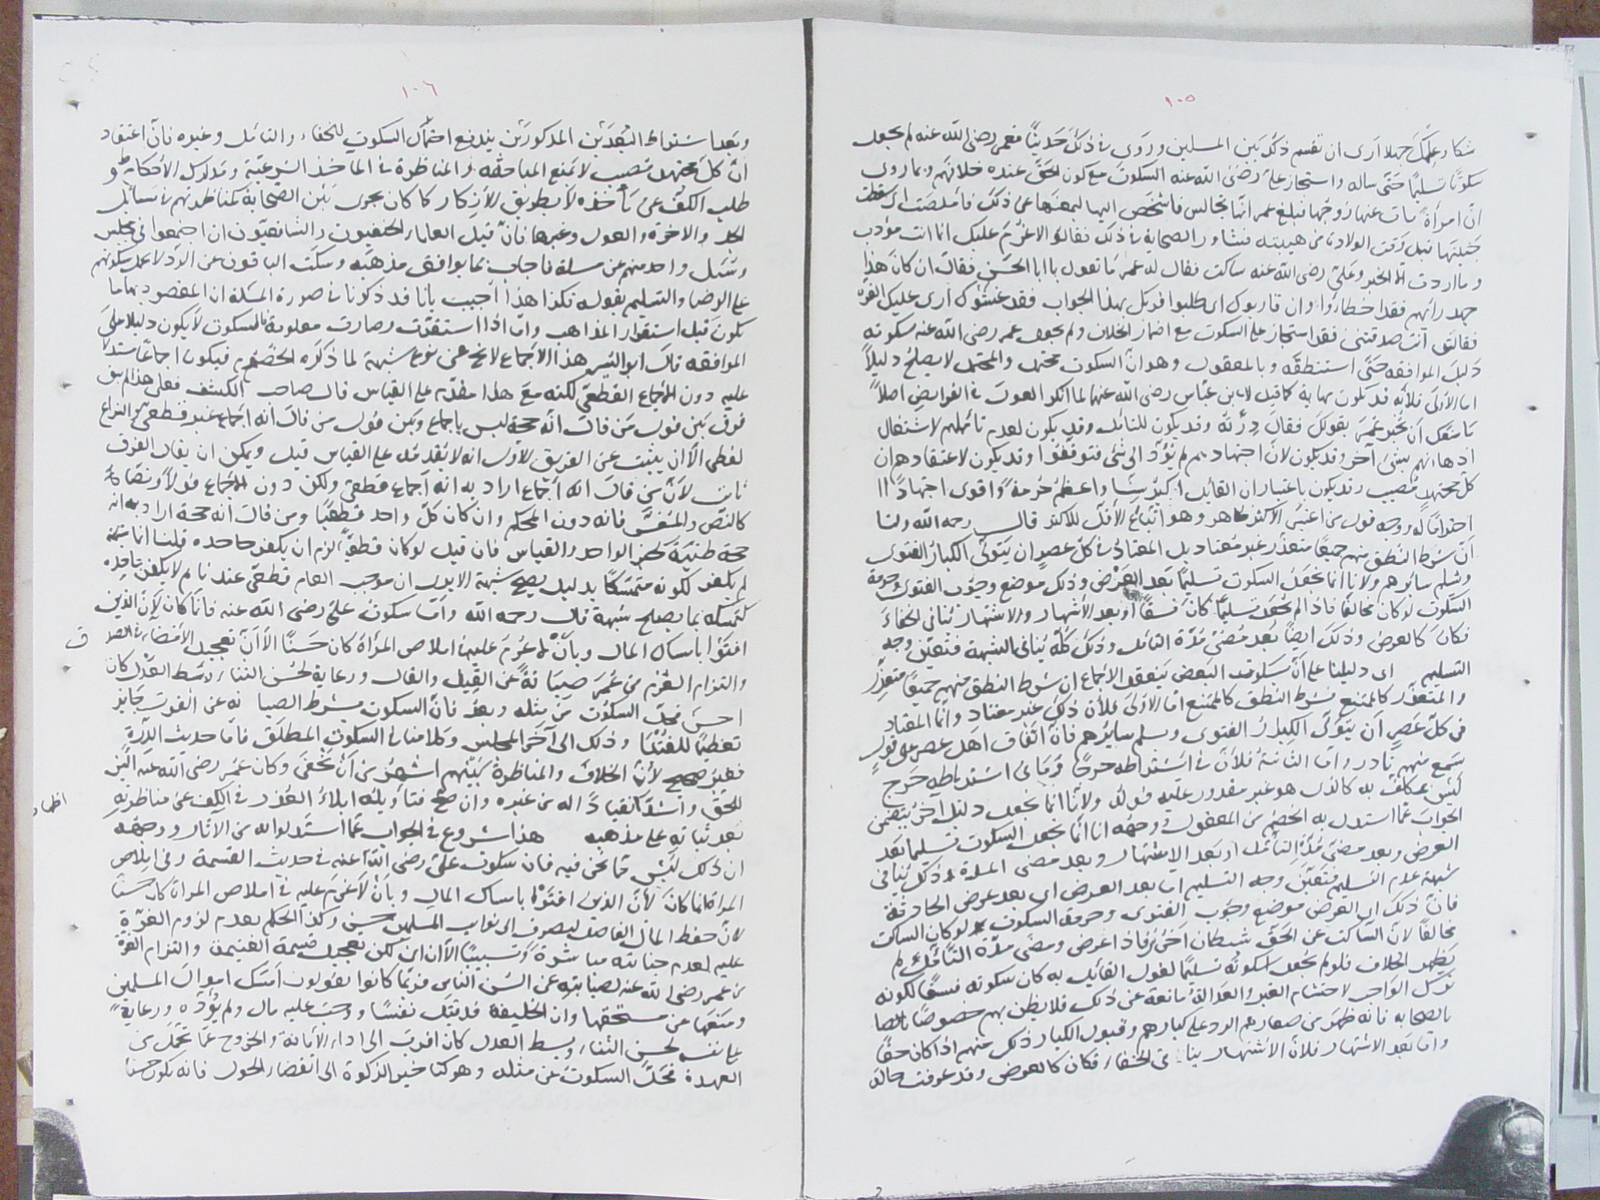 ١٠٥
شكا وعلمك جهلا ارى ان تقسم ذلك بين المسلمين وروى في ذلك حديثا فعمر رضي الله عنه لم يجعل
سكوته تسليما حتى ساله واستجاز علي رضي الله عنه السكوت مع كون الحق عنده خلافهم وبما روى
ان امرأة مات عنها زوجها فبلغ عمر انها تجالس فاشخص اليها ليمنعها عن ذلك فاملصت اي سقطت
قبل وقت الولادة من هيبته فشاور الصحابة في ذلك فقالوا لا غرم عليك انما انت مؤدب
وما اردت الا الخير وعلي رضي الله عنه ساكت فقال له عمر ما تقول يا ابا الحسن فقال ان كان هذا
جهد رأيهم فقد اخطأوا وان قاربوك اي طلبوا قربك بهذا الجواب فقد غشوك ارى عليك الغرة
فقال انت صدقتني فقد استجاز علي السكوت مع اضمار الخلاف ولم يجعل عمر رضي الله عنه سكوته
دليل الموافقة حتى استنطقه وبالمعقول وهو ان السكوت محتمل والمحتمل لا يصلح دليلا
اما الاول فلانه قد يكون مهابة كما قيل لابن عباس رضي الله عنهما لما انكر العول في الفرايض اصلا
ما منعك ان تخبر عمر بقولك فقال درته وقد يكون للتأمل وقد يكون لعدم تأملهم لاشتغال
اذهانهم بشئ اخر وقد يكون لان اجتهادهم لم يؤد الى شئ فتوقفوا وقد يكون لاعتقادهم ان
كل مجتهد مصيب وقد يكون باعتبار ان القائل اكبر سنا واعظم حرمة واقوى اجتهادا
احتراما له ووجه قول من اعتبر الاكثر ظاهر وهو اتباع الاقل للاكثر قال رحمه الله ولنا
ان شرط النطق منهم جميعا متعذر غير معتاد بل المعتاد في كل عصر ان يتولى الكبار الفتوى
ويسلم سائرهم ولانا انما نجعل السكوت تسليما بعد العرض وذلك موضع وجوب الفتوى وحرمة
السكوت لو كان مخالفا فاذا لم يجعل تسليما كان فسقا او بعد الاشتهار والاشتهار ينافي الخفاء
فكان كالعرض وذلك ايضا بعد مضي مدة التأمل وذلك كله ينافي الشبهة فتعين وجه
التسليم اي دليلنا على ان سكوت البعض ينعقد الاجماع ان شرط النطق منهم جميعا متعذر
والمتعذر كالممتنع فشرط النطق كالممتنع اما الاولى فلان ذلك غير معتاد وانما المعتاد
في كل عصر ان يتولى الكبار الفتوى ويسلم سايرهم فان اتفاق اهل عصر على قول
يسمع منهم نادر واما الثانية فلان في اشتراطه حرجا وما في اشتراطه حرج
ليس بمكلف به كالذي هو غير مقدور عليه قوله ولانا انما نجعل دليل اخر يتضمن
الجواب عما استدل به الخصم من المعقول ووجهه انا انما نجعل السكوت تسليما بعد
العرض وبعد مضي مدة التأمل او بعد الاشتهار وبعد مضي المدة وذلك ينافي
شبهة عدم التسليم فتعين وجه التسليم اما بعد العرض اي بعد عرض الحادثة
فان ذلك اي العرض موضع وجوب الفتوى وحرمة السكوت لو كان الساكت
مخالفا لان الساكت عن الحق شيطان اخرس فاذا عرض ومضى مدة التأمل ولم
يظهر الخلاف فلو لم يجعل سكوته تسليما لقول القائل به كان سكوته فسقا لكونه
ترك الواجب لاحتشام الغير والعدالة مانعة عن ذلك فلا يظن بهم خصوصا
بالصحابة فانه ظهر من صغارهم الرد على كبارهم وقبول الكبار ذلك منهم اذا كان حقا
واما بعد الاشتهار فلان الاشتهار ينافي الخفاء فكان كالعرض وقد عرفت حاله
١٠٦
وبعد اشتراط القيدين المذكورين يندفع احتمال السكوت للخفاء والتأمل وغيره فان اعتقاد
ان كل مجتهد مصيب لا يمنع المباحثة والمناظرة في الماخذ الشرعية ومدلوله الاحكام و
طلب الكشف عن مأخذه لا بطريق الانكار كما كان يجري بين الصحابة كمناظرتهم في مسائل
الجد والاخوة والعول وغيرها فان قيل العلماء الحنفيون والشافعيون ان اجتمعوا في مجلس
وسئل واحد منهم عن مسلة فاجاب بما يوافق مذهبه وسكت الباقون عن الرد لا يحمل سكوتهم
على الرضا والتسليم بقوله فكذا هذا اجيب بانا قد ذكرنا في صورة المسلة ان المقصود بهاما
يكون قبل استقرار المذاهب واما اذا استقرت وصارت معلومة فالسكوت لا يكون دليلا على
الموافقة قال ابو اليسر هذا الاجماع لا يخلو عن نوع شبهة لما ذكره الخصوم فيكون اجماعا مستدلا
عليه دون الاجماع القطعي لكنه مع هذا مقدم على القياس قال صاحب الكشف فعلى هذا لم يبق
فرق بين قول من قال انه حجة ليس باجماع وبين قول من قال انه اجماع غير قطعي والنزاع
لفظي الا ان يثبت عن الفريق الاول انه لا يقدمه على القياس قيل ويمكن ان يقال الفرق
ثابت لان من قال انه اجماع اراد به انه اجماع قطعي ولكن دون الاجماع قولا ونصا
كالنص والمفسر فانه دون المحكم وان كان كل واحد قطعيا ومن قال انه حجة اراد به انه
حجة ظنية كخبر الواحد والقياس فان قيل لو كان قطعيا لزم ان يكفر جاحده قلنا انما
لم يكفر لكونه متمسكا بدليل يصلح شبهة الا يرى ان موجب العام قطعي عندنا لم لا يكفر جاحده
لتمسكه بما يصلح شبهة قال رحمه الله واما سكوت علي رضي الله عنه فانما كان لان الذين
افتوا بامساك المال وبان لا غرم عليه في املاص المرأة كان حسنا الا ان تعجيل الامضاء في الصدقة
والتزام الغرم من عمر صيانة عن القيل والقال ورعاية لحسن الثناء وبسط العدل كان
احسن فحل السكوت عن مثله وبعد فان السكوت بشرط الصيانة عن الفوت جايز
تعظيما للفتيا وذلك الى آخر المجلس وكلامنا في السكوت المطلق فاما حديث الدرة
فغير صحيح لان الخلاف والمناظرة بينهم اشهر من ان تخفى وكان عمر رضي الله عنه الين
للحق واشد انقيادا له من غيره وان صح فتأويله ابلاء العذر في الكف عن مناظرته
بعد ثباته على مذهبه هذا شروع في الجواب عما استدلوا به من الآثار ووجهه
ان ذلك ليس مما نحن فيه فان سكوت علي رضي الله عنه في حديث القسمة وفي املاص
المرأة انما كان لان الذين افتوا بامساك المال وبان لا غرم عليه في املاص المرأة كان حسنا
لان حفظ المال الفاضل ليصرف الى نوايب المسلمين حسن وكذا الحكم بعدم لزوم الغرة
عليه لعدم جنايته مباشرة وتسبيبا الا ان تعجيل قسمة الغنيمة والتزام الغرة
من عمر رضي الله عنه لصيانته عن السن الناس فربما كانوا يقولون امسك اموال المسلمين
ومنعها عن مستحقها وان الخليفة قد قتل نفسا ووجب عليه مال ولم يؤده ورعاية
لحسن الثناء وبسط العدل كان اقرب الى اداء الامانة والخروج عما تحمل من
العهدة فحل السكوت عن مثله وهو كتأخير الزكوة الى انقضاء الحول فانه يكون حسنا
ق
اظهار